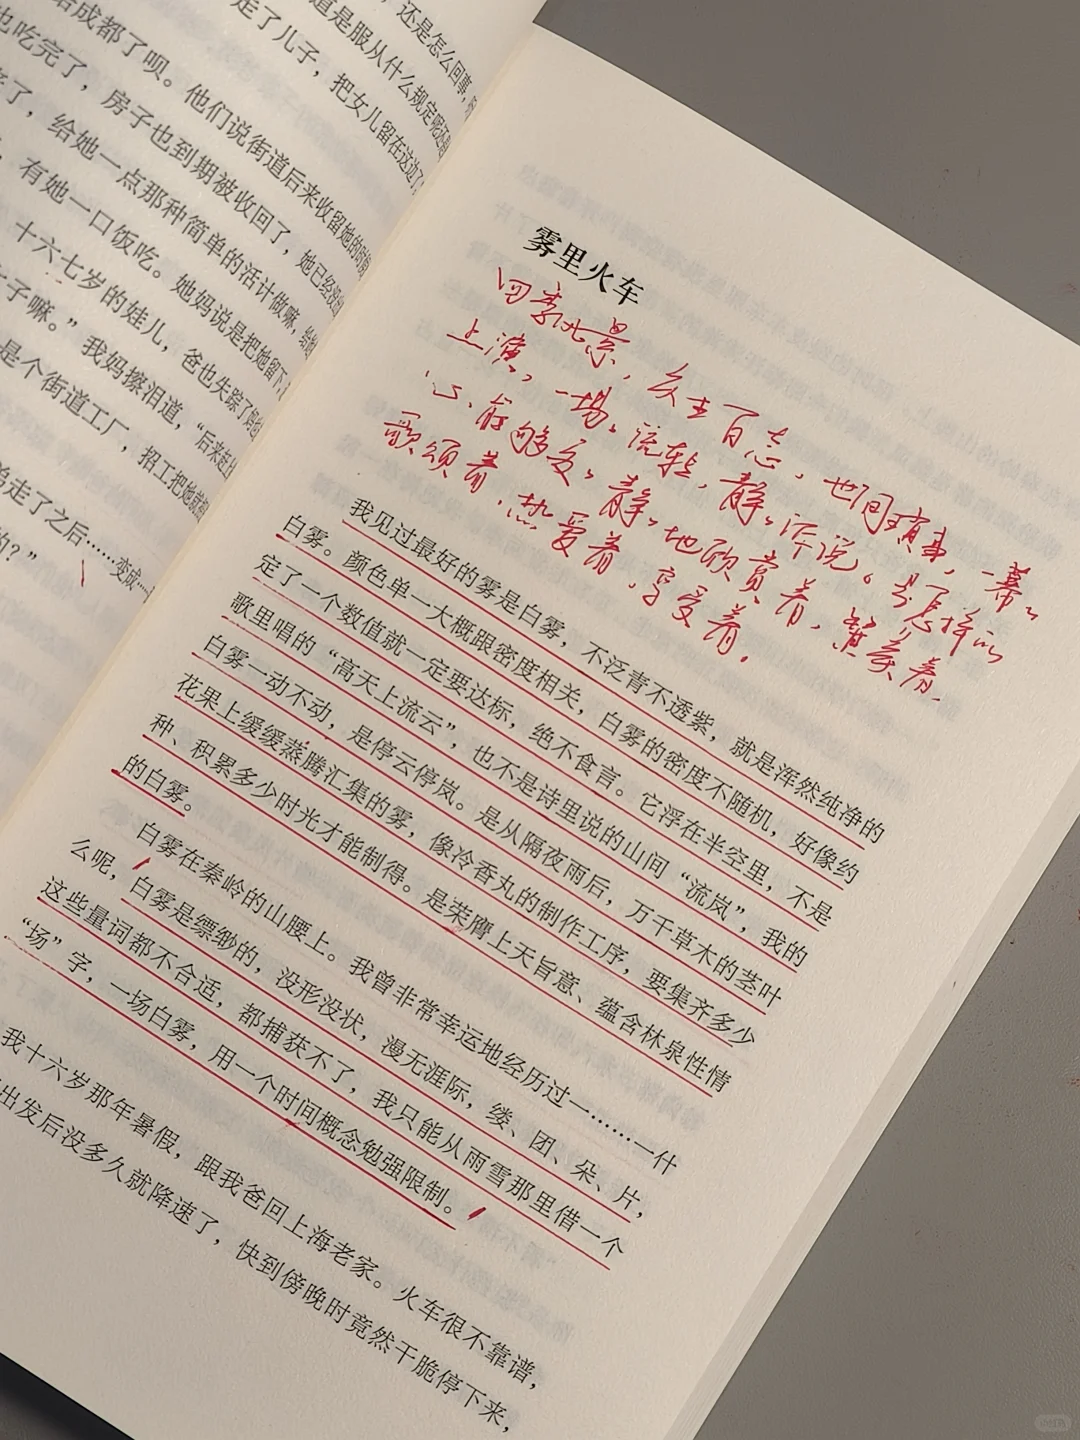 还是怎么回事，
道是服从什么规定呢还是
走了儿子，把女儿留在这边了
给成都了呗。他们说街道后来收留她的时候
也吃完了，房子也到期被收回了，她已经没
老了，给她一点那种简单的活计做嘛，给她
，有她一口饭吃。她妈说是把她留下，
十六七岁的娃儿，爸也失踪了
子嘛。”我妈擦泪道，“后来
是个街道工厂，招工把她就
弟走了之后……变成
的？”
雾里火车
四季光景，众生百态，世间琐事，一幕幕
上演，一场场流转，静静诉说。是怎样的
心，能够多多静静地欣赏着，赞美着，
歌颂着，热爱着，享受着。
我见过最好的雾是白雾，不泛青不透紫，就是浑然纯净的
白雾。颜色单一大概跟密度相关，白雾的密度不随机，好像约
定了一个数值就一定要达标，绝不食言。它浮在半空里，不是
歌里唱的“高天上流云”，也不是诗里说的山间“流岚”，我的
白雾一动不动，是停云停岚。是从隔夜雨后，万千草木的茎叶
花果上缓缓蒸腾汇集的雾，像冷香丸的制作工序，要集齐多少
种、积累多少时光才能制得。是荣膺上天旨意、蕴含林泉性情
的白雾。
白雾在秦岭的山腰上。我曾非常幸运地经历过一……一什
么呢，白雾是缥缈的，没形没状，漫无涯际，缕、团、朵、片，
这些量词都不合适，都捕获不了，我只能从雨雪那里借一个
“场”字，一场白雾，用一个时间概念勉强限制。
我十六岁那年暑假，跟我爸回上海老家。火车很不靠谱，
出发后没多久就降速了，快到傍晚时竟然干脆停下来，